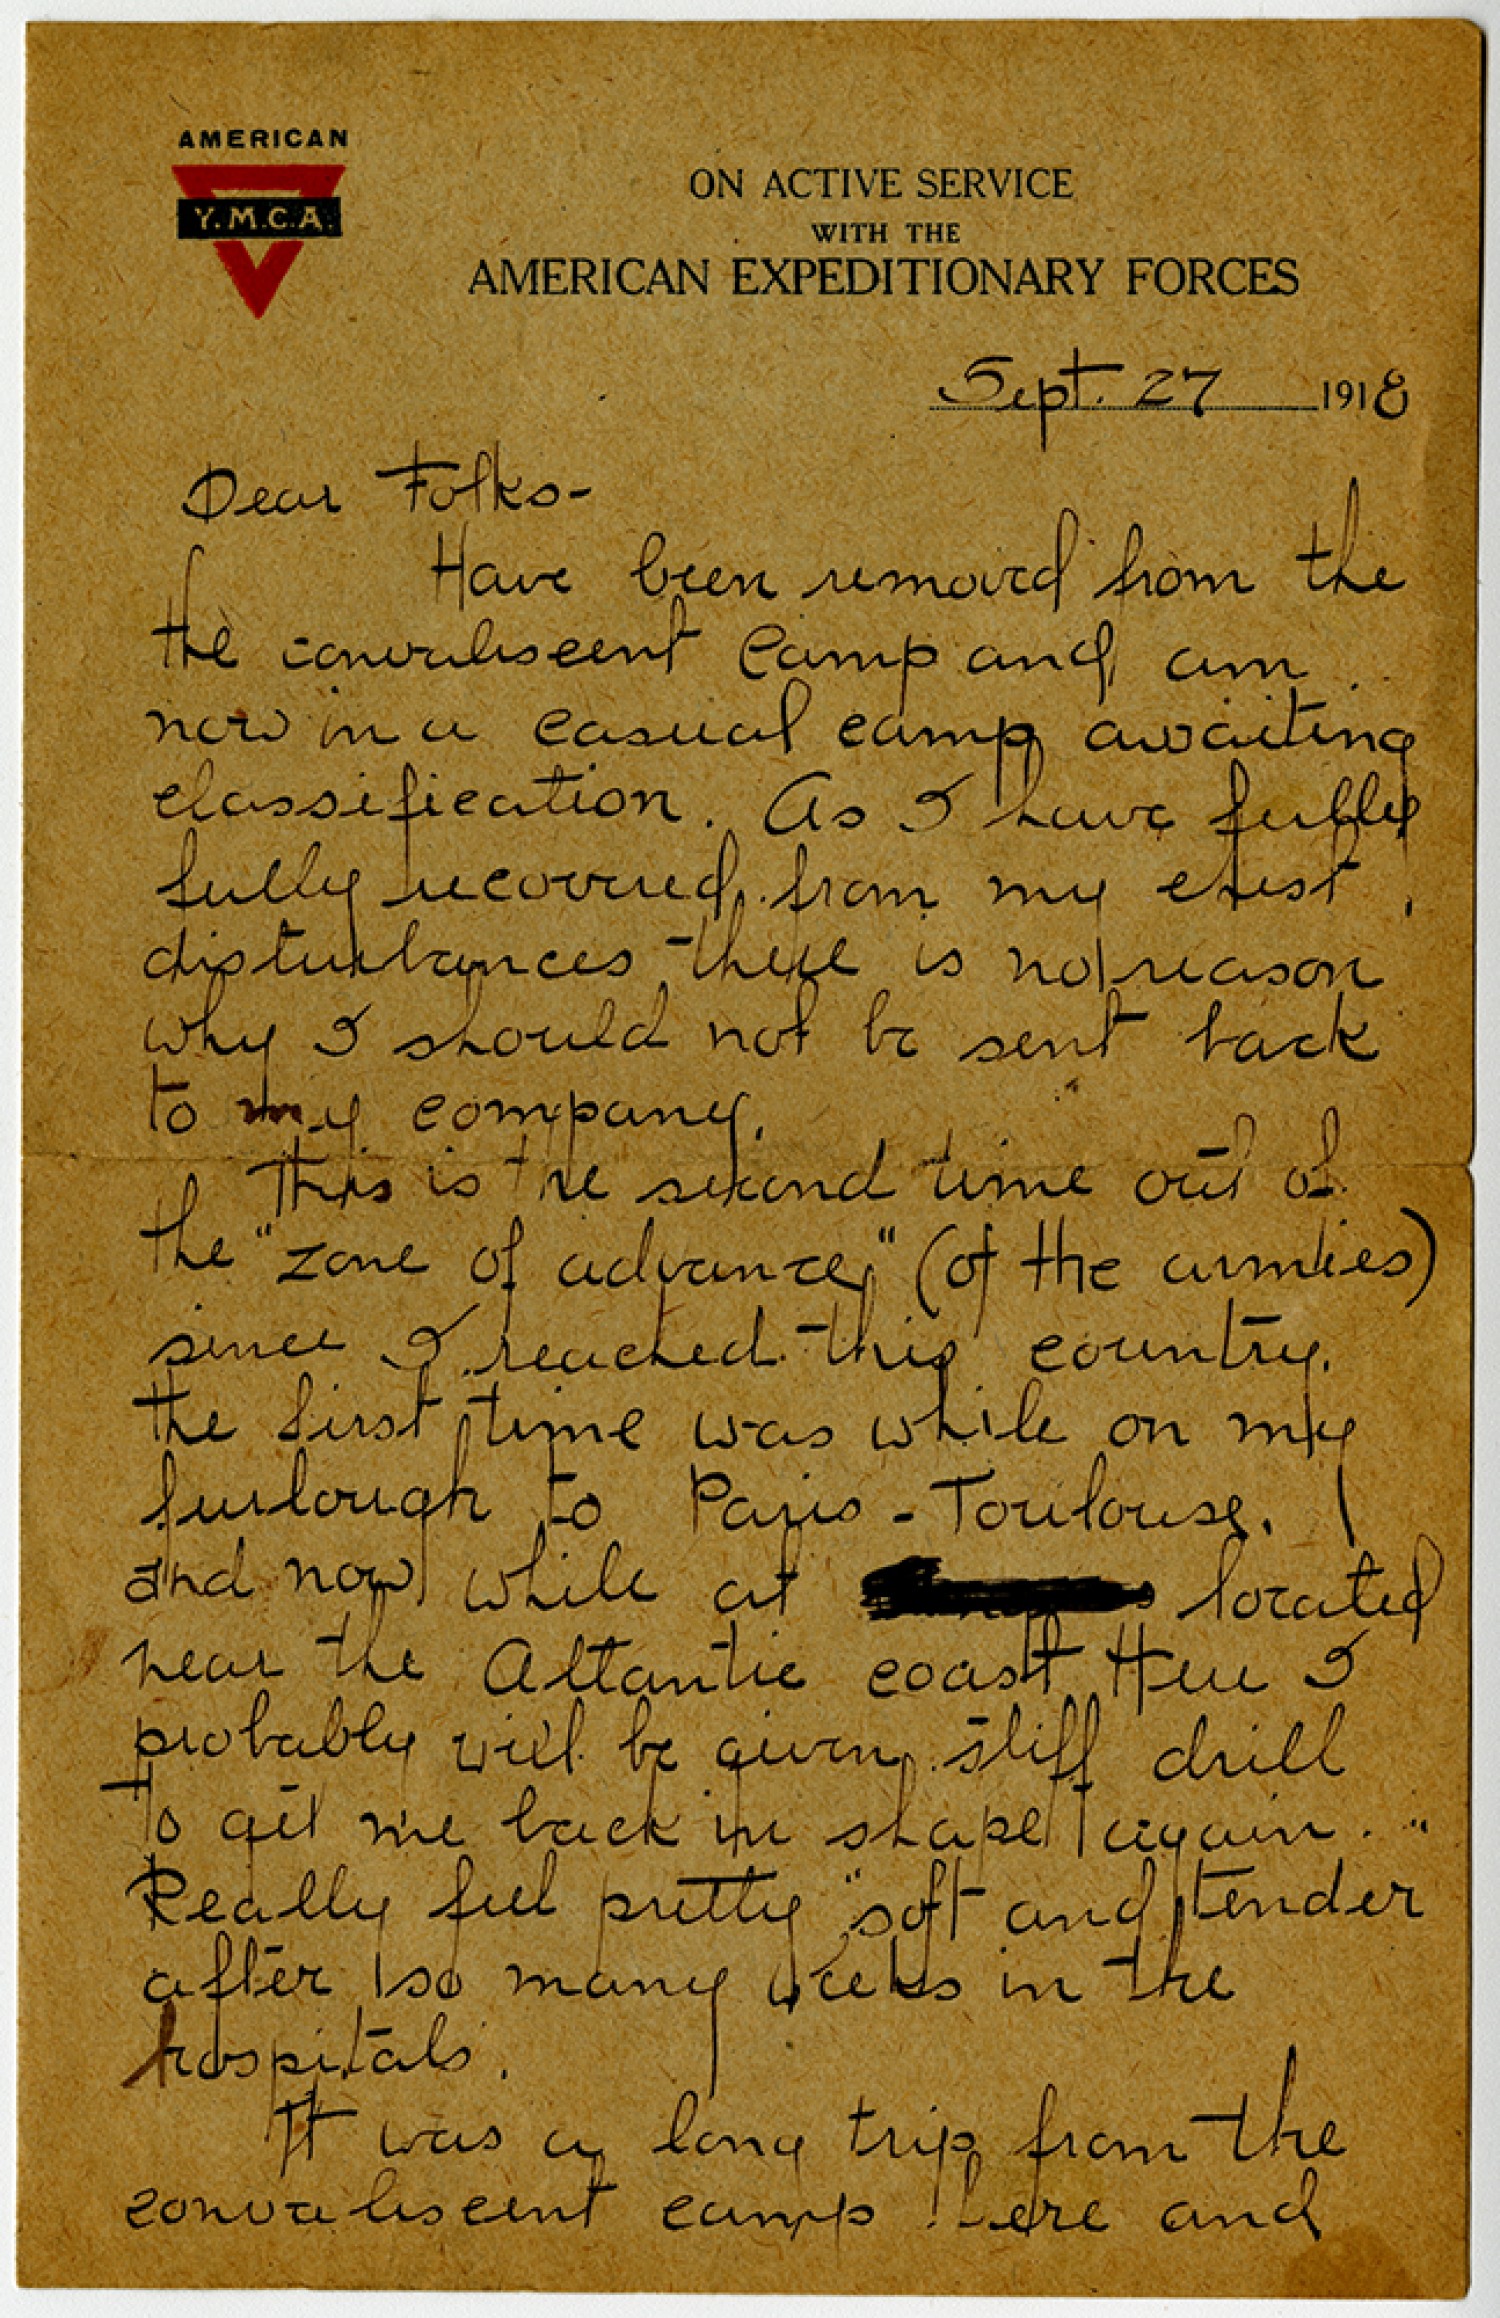 AMERICAN
Y.M.C.A.
ON ACTIVE SERVICE
WITH THE
AMERICAN EXPEDITIONARY FORCES
Sept. 27 1918
Dear Folks-
Have been removed from the
the convalescent camp and am
now in a casual camp awaiting
classification. As I have fully
fully recovered from my chest
disturbances there is no reason
why I should not be sent back
to my company.
This is the second time out of
the "zone of advance," (of the armies)
since I reached this country.
the first time was while on my
furlough to Paris - Toulouse.
and now while at located
near the Atlantic coast Here I
probably will be given stiff drill
to get me back in shape again.
Really feel pretty "soft and tender"
after so many weeks in the
hospitals.
It was a long trip from the
convalescent camp here and